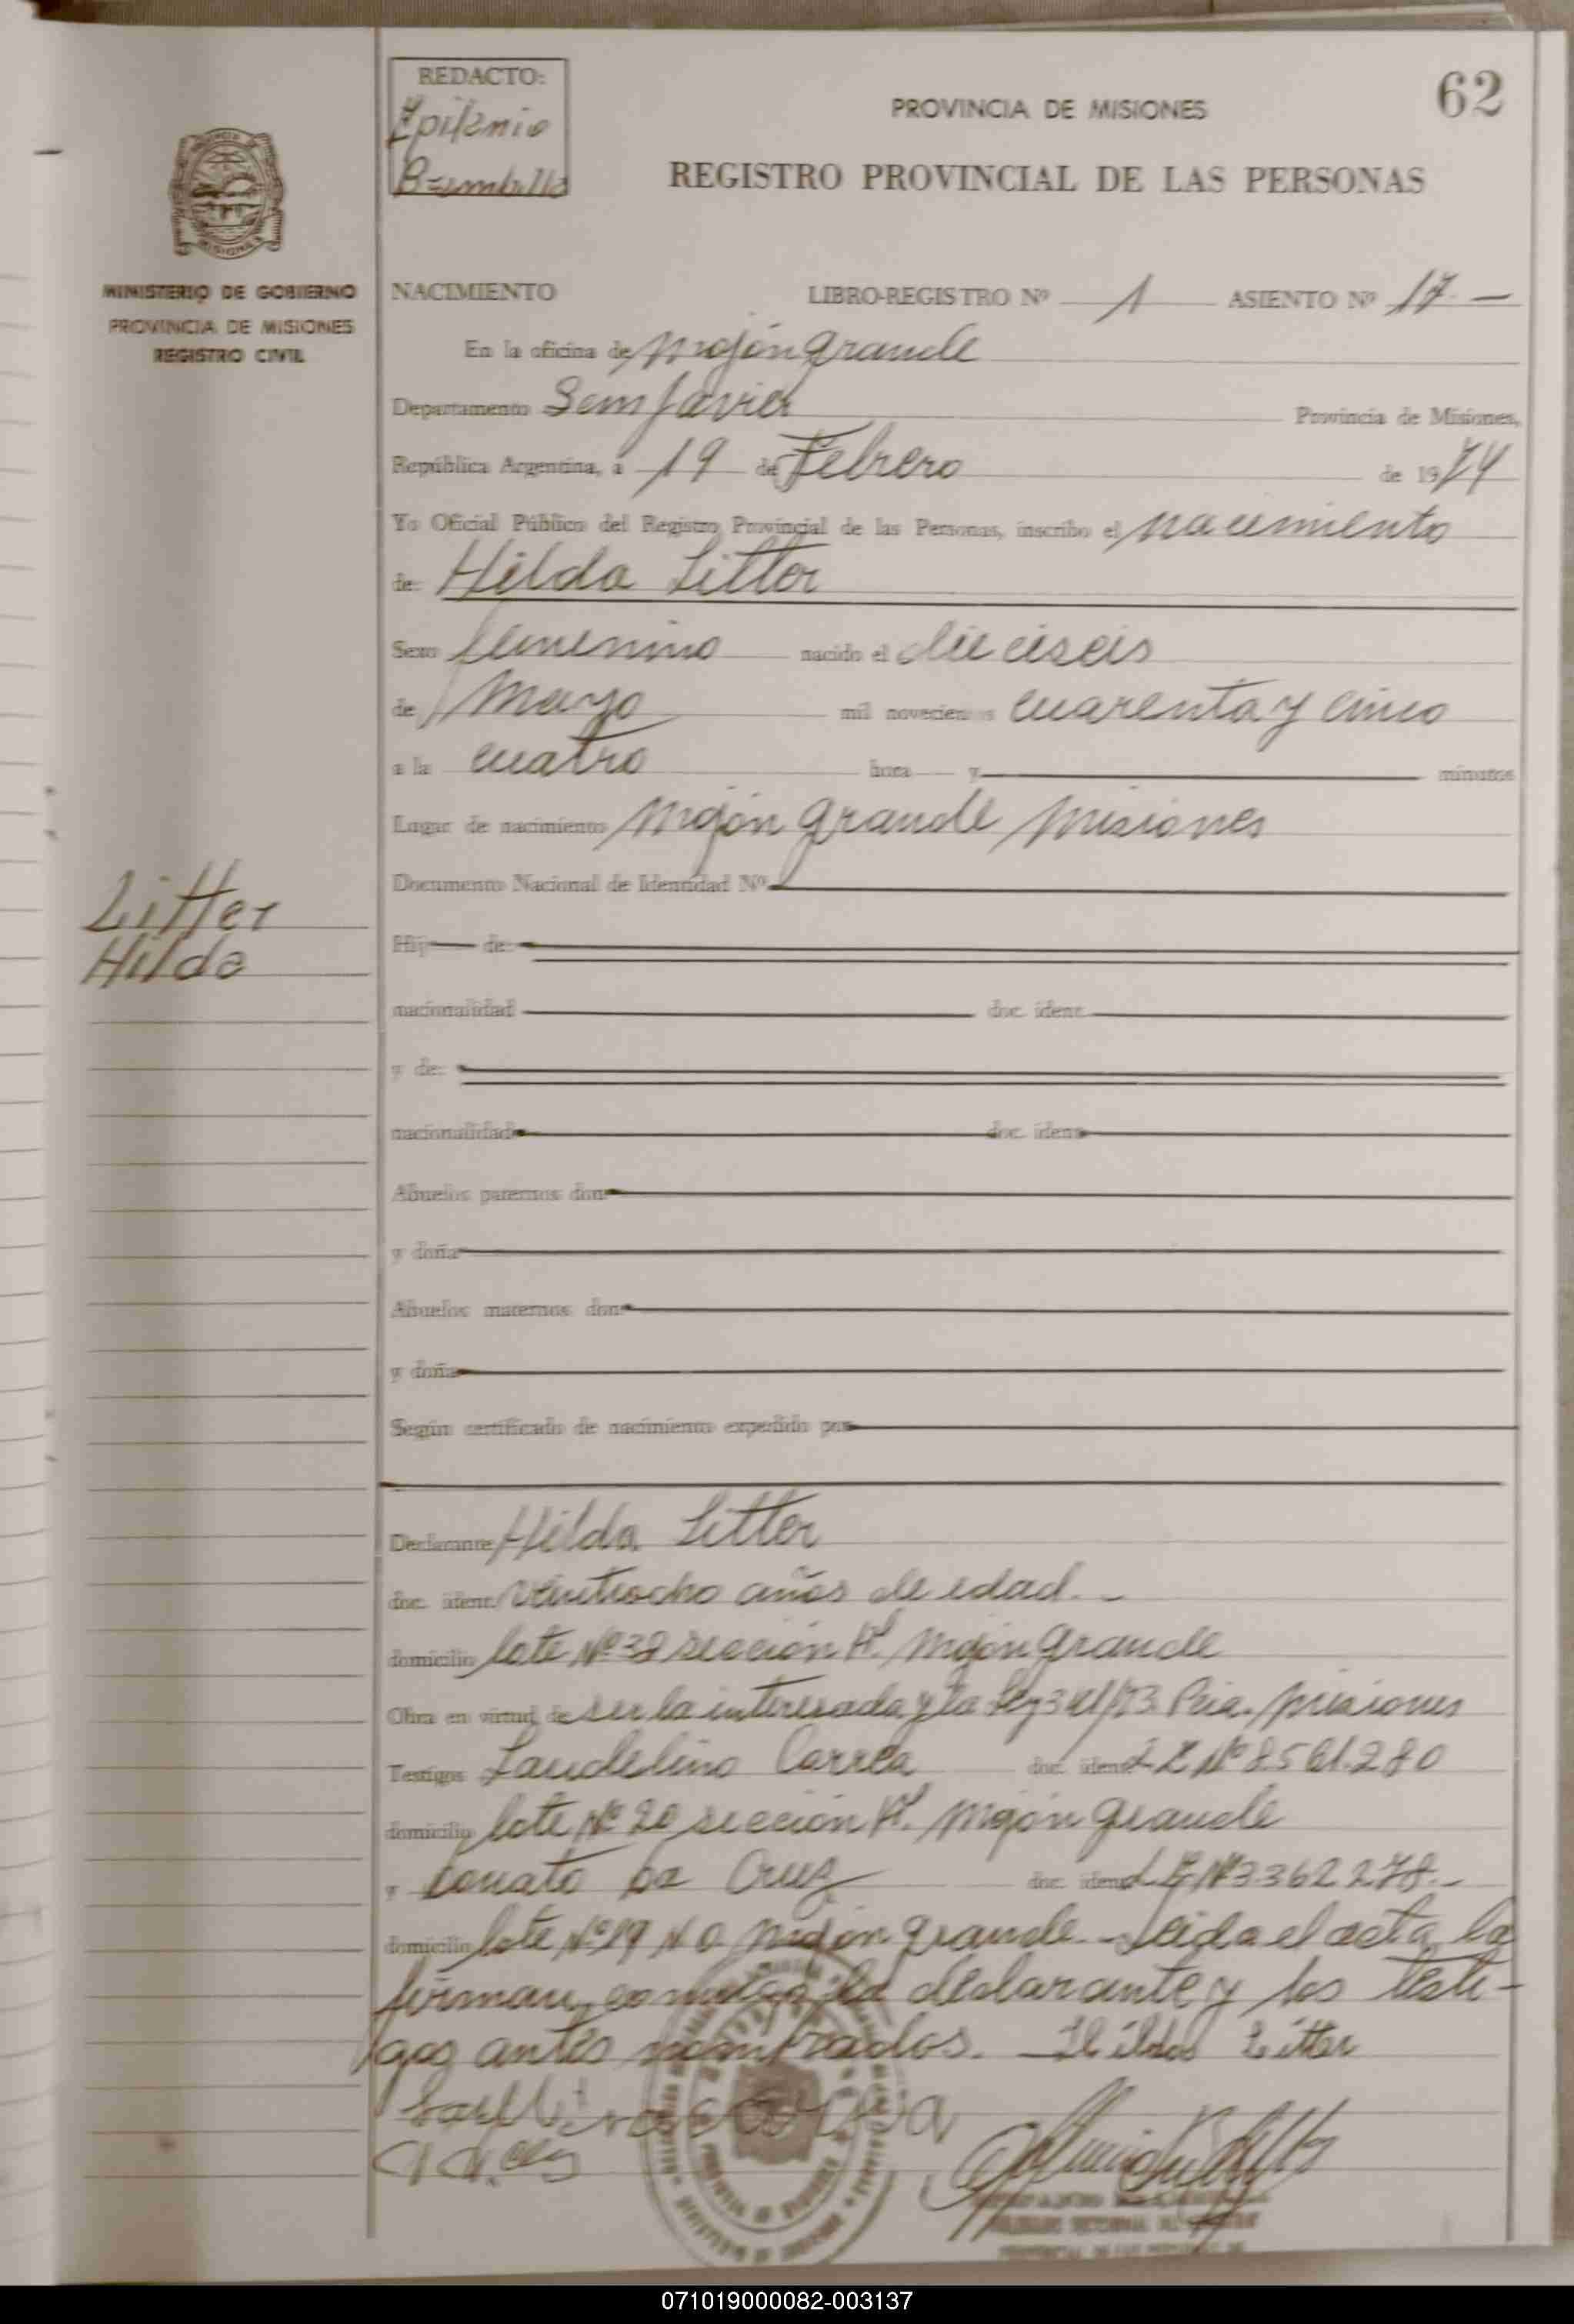 REDACTO:
Epifanio
62
PROVINCIA DE MISIONES
REGISTRO PROVINCIAL DE LAS PERSONAS
MISIONES
MINISTERIO DE GOBIERNO
PROVINCIA DE MISIONES
REGISTRO CIVIL
NACIMIENTO LIBRO-REGISTRO Nº 1 ASIENTO Nº 17.-
En la oficina de Mojón grande
Departamento San Javier Provincia de Misiones,
República Argentina, a 19 de Febrero de 1974
Yo Oficial Público del Registro Provincial de las Personas, inscribo el nacimiento
de: Hilda Litter
Sexo femenino nacido el dieciseis
de Mayo mil novecientos cuarenta y cinco
a la cuatro hora y minutos
Lugar de nacimiento Mojón grande Misiones
Documento Nacional de Identidad Nº
Litter
Hilda
Hij de:
nacionalidad doc. ident.
y de:
nacionalidad doc. ident.
Abuelos paternos don
y doña
Abuelos maternos don
y doña
Según certificado de nacimiento expedido por
Declarante Hilda Litter
doc. ident. veintiocho años de edad.-
domicilio lote Nº 32 sección Mojón grande
Obra en virtud de ser la interesada y la Ley Pcia. Misiones
Testigos Laudelino Correa doc. ident. L E Nº 8.561.280
domicilio lote Nº 20 sección Mojón grande
y Donato Da Cruz doc. ident. L E Nº 3362278.-
domicilio lote Nº 19 N O Mojón grande.- Leida el acta la
firman conmigo la declarante y los testi-
gos antes nombrados. - Hilda Litter
071019000082-003137